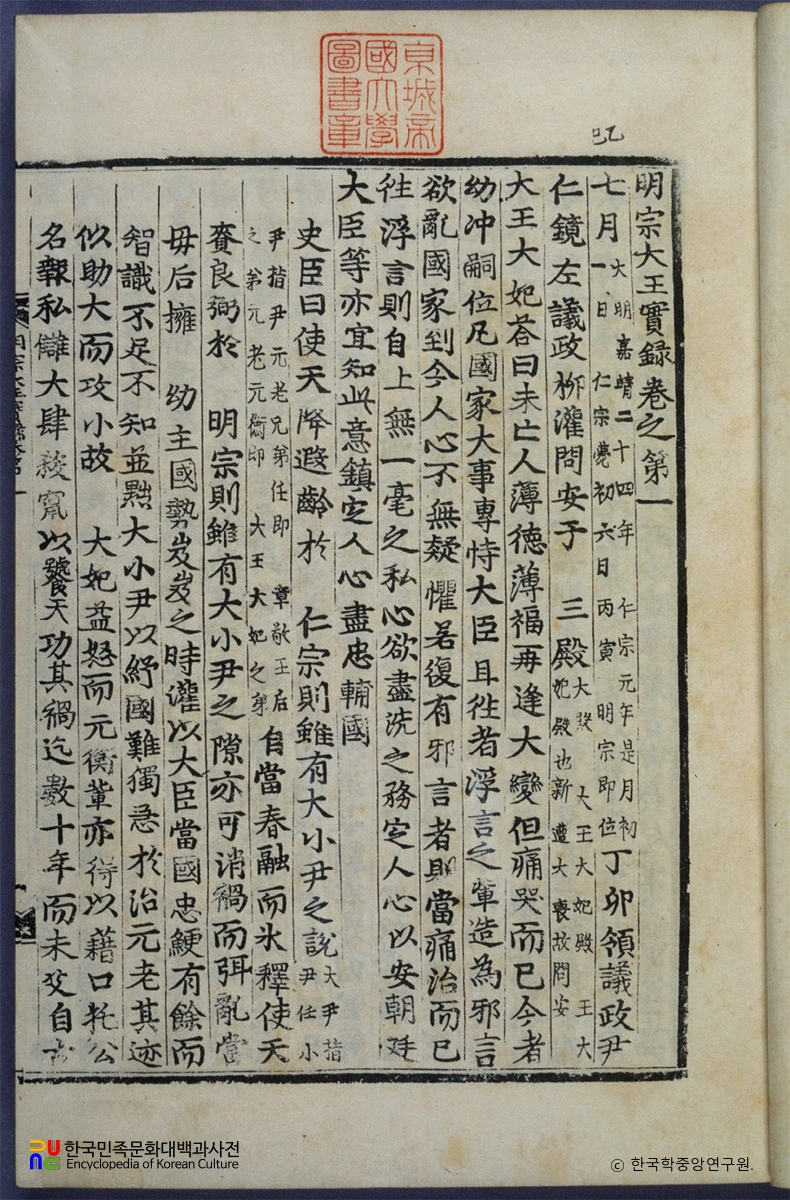 京城帝
國大學
圖書章
明宗大王實錄卷之第一
七月一日大明嘉靖二十四年仁宗元年是月初
仁宗薨初六日丙寅明宗即位丁卯領議政尹
仁鏡左議政柳灌問安于 三殿大殿 大王大妃殿 王大
妃殿也新遭大喪故問安
大王大妃答曰未亡人薄德薄福再逢大變但痛哭而已今者
幼冲嗣位凡國家大事專恃大臣且徃者浮言之輩造為邪言
欲亂國家到今人心不無疑懼若復有邪言者則當痛治而已
徃浮言則自上無一毫之私心欲盡洗之務定人心以安朝廷
大臣等亦宜知此意鎮定人心盡忠輔國
史臣曰使天降遐齡於 仁宗則雖有大小尹之說大尹指
尹任小
尹指尹元老兄弟任即 章敬王后
之弟元老元衡即 大王大妃之弟自當春融而氷釋使天
賚良弼於 明宗則雖有大小尹之隙亦可消禍而弭亂當
母后擁 幼主國勢岌岌之時灌以大臣當國忠鯁有餘而
智識不足不知並黜大小尹以紓國難獨急於治元老其迹
似助大而攻小故 大妃益怒而元衡輩亦得以藉口托公
名報私讎大肆殺竄以饕天功其禍迄數十年而未艾自古
한국민족문화대백과사전
Encyclopedia of Korean Culture
ⓒ 한국학중앙연구원.